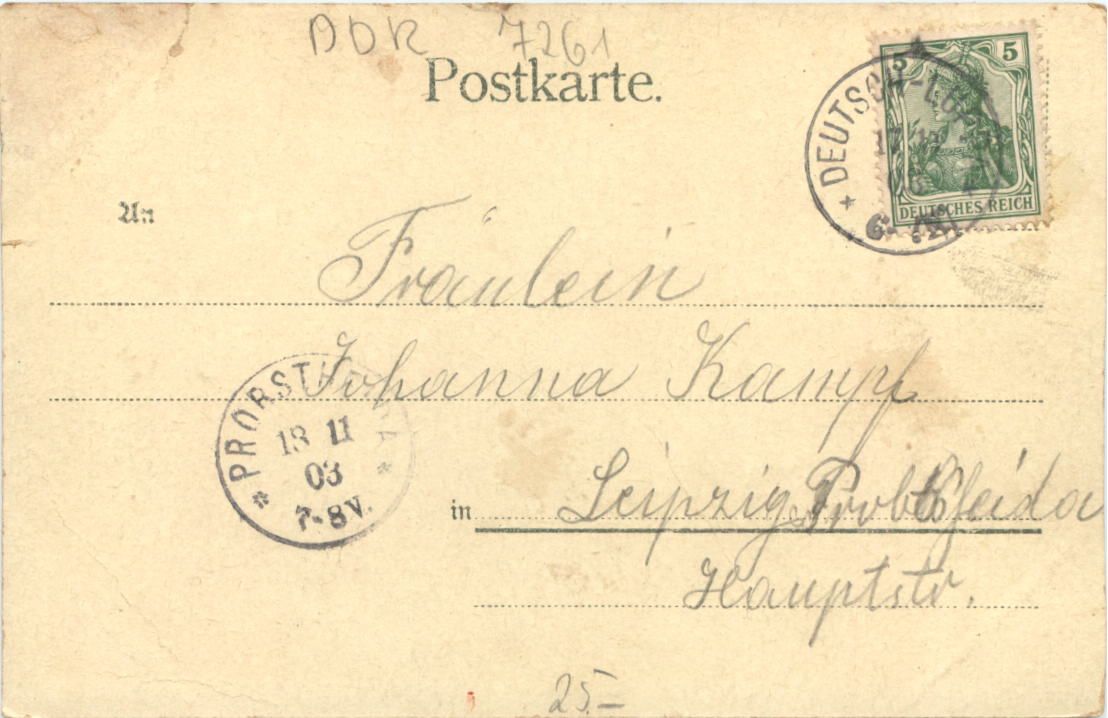 BDR 7261
Postkarte.
5 5
DEUTSCHES REICH
DEUTSCH-
An
Fräulein
Johanna Kampf
PROBSTHEIDA
18 11
03
7-8V.
in Leipzig Probstheida
Hauptstr.
25.-